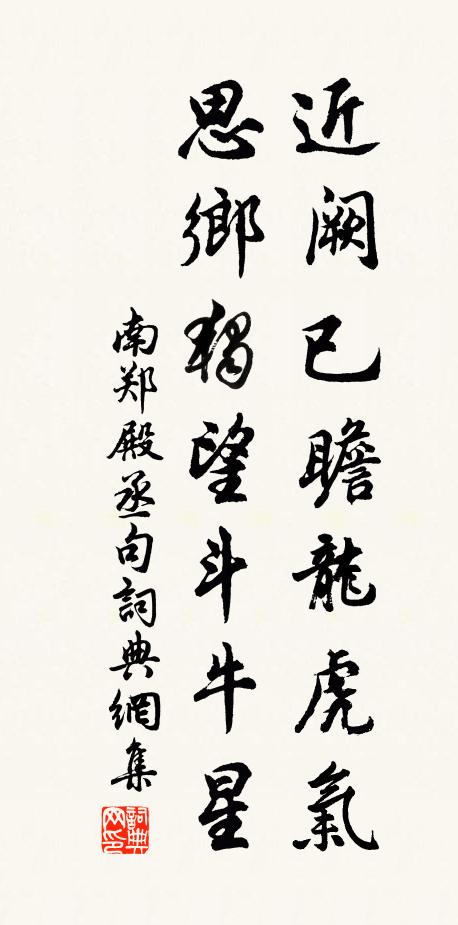 近阙已瞻龍虎氣
思鄉獨望斗牛星
南郑殿丞句詞典網集
詞典
网印